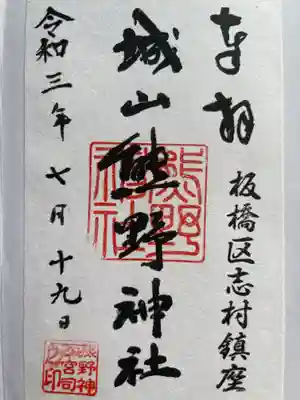 奉拝
板橋区志村鎮座
城山熊野神社
熊野神社
令和三年七月十九日
熊野神社宮司之印